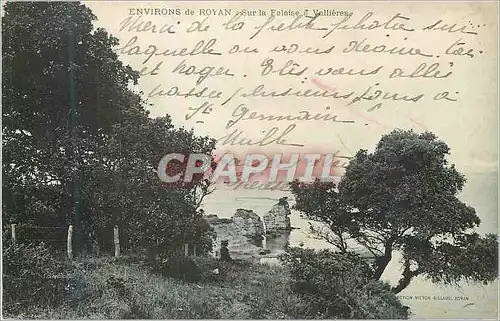 ENVIRONS de ROYAN - Sur la Falaise à Vallières
Merci de la petite photo sur
laquelle on vous devine
et nager. Etes vous allés
passer plusieurs jours à
St Germain
Mille
CPAPHIL
COLLECTION VICTOR BILLAUD, ROYAN